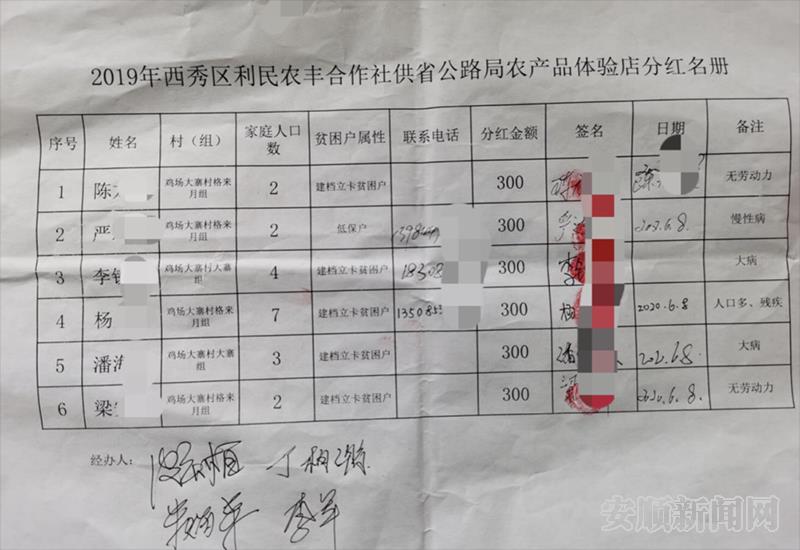 2019年西秀区利民农丰合作社供省公路局农产品体验店分红名册
序号 姓名 村（组） 家庭人口数 贫困户属性 联系电话 分红金额 签名 日期 备注
1 陈 鸡场大寨村格来月组 2 建档立卡贫困户 300 无劳动力
2 严 鸡场大寨村格来月组 2 低保户 300 慢性病
3 李 鸡场大寨村大寨组 4 建档立卡贫困户 300 大病
4 杨 鸡场大寨村格来月组 7 建档立卡贫困户 300 2020.6.8 人口多、残疾
5 潘 鸡场大寨村大寨组 3 建档立卡贫困户 300 大病
6 梁 鸡场大寨村格来月组 2 建档立卡贫困户 300 2020.6.8. 无劳动力
经办人：
安顺新闻网